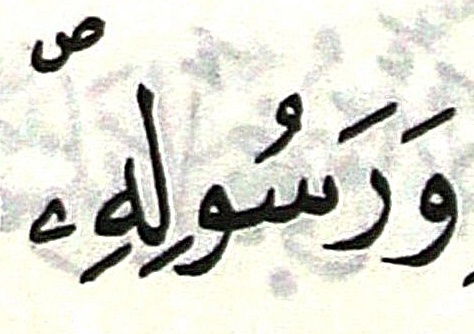 وَرَسُولِهِۦ ص